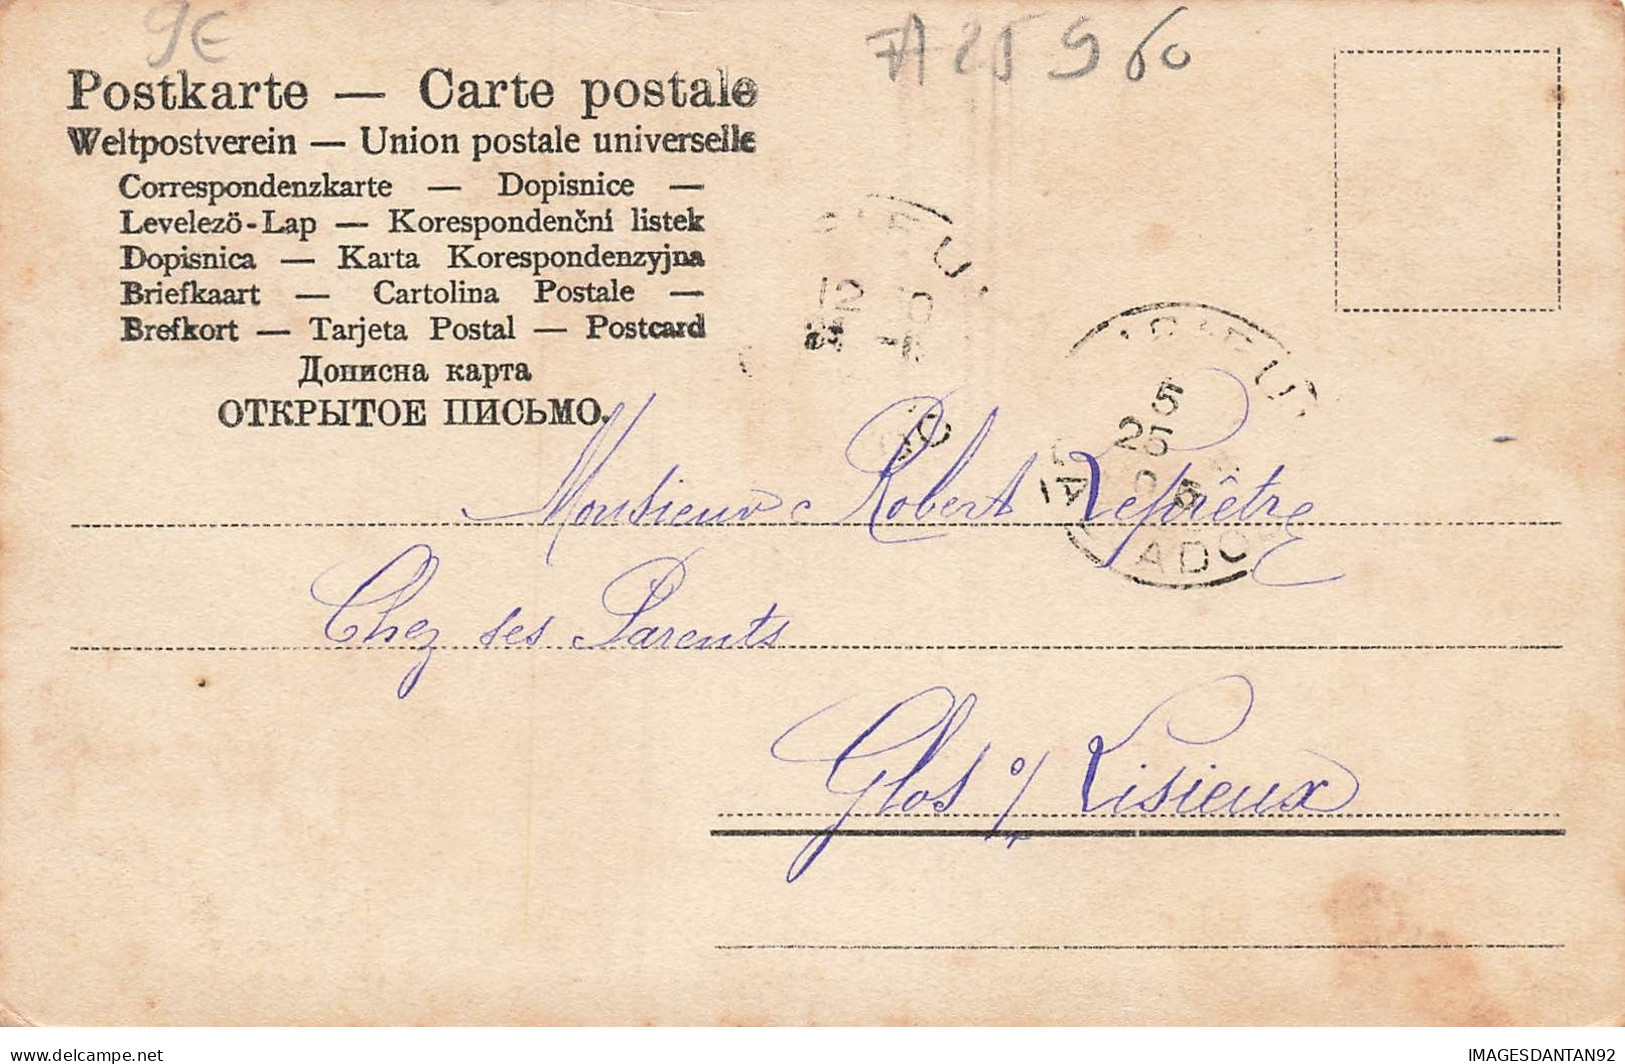 9€
FA 25960
Postkarte — Carte postale
Weltpostverein — Union postale universelle
Correspondenzkarte — Dopisnice —
Levelező-Lap — Korespondenční listek
Dopisnica — Karta Korespondenzyjna
Briefkaart — Cartolina Postale —
Brefkort — Tarjeta Postal — Postcard
Дописна карта
ОТКРЫТОЕ ПИСЬМО.
12
5
25
Monsieur Robert Leprêtre
Chez ses Parents
Glos s/ Lisieux
delcampe.net
IMAGESDANTAN92